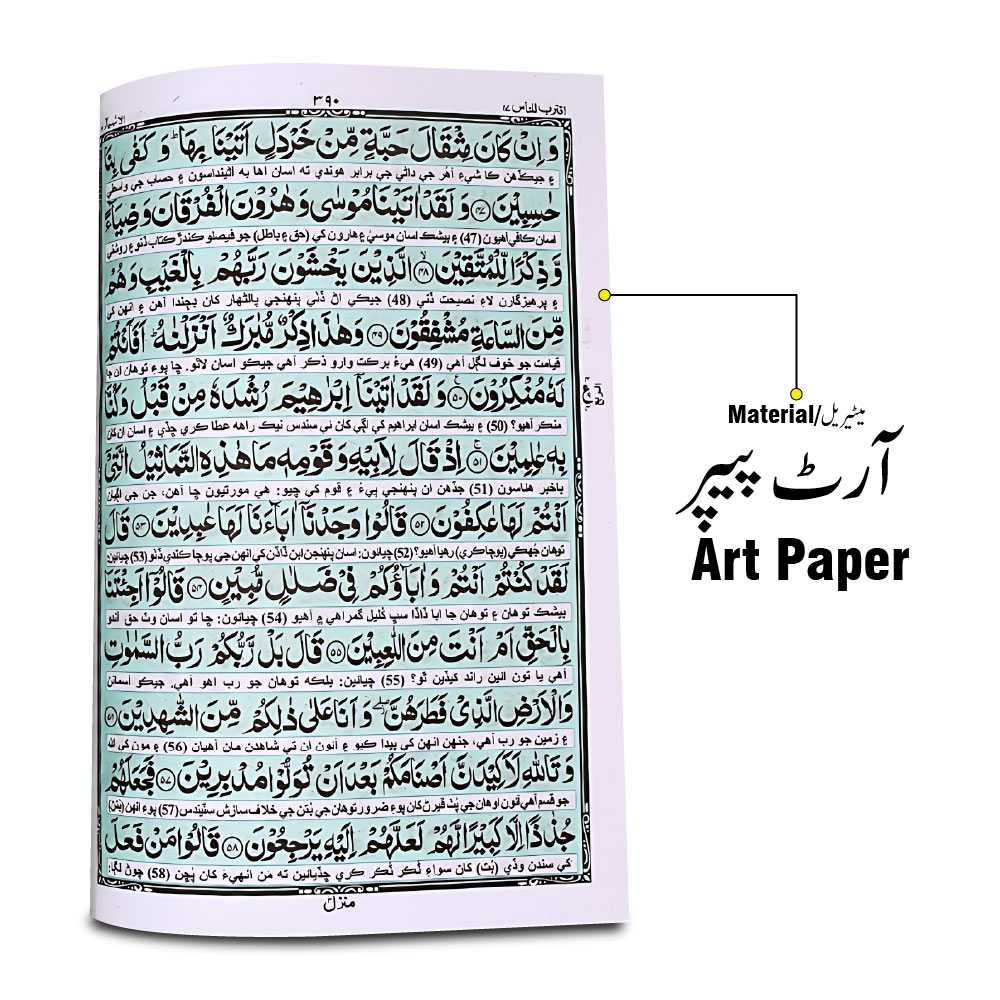 اقترب للناس ١٧
٣٩٠
وَاِنْ كَانَ مِثْقَالَ حَبَّةٍ مِّنْ خَرْدَلٍ اَتَيْنَا بِهَا ؕ وَ كَفٰى بِنَا
۽ جيڪڏهن ڪا شيءِ اَهُر جي داڻي جي برابر هوندي ته اسان اها به آڻينداسون ۽ حساب جي واسطي
حٰسِبِيْنَ ﴿٤٧﴾ وَ لَقَدْ اٰتَيْنَا مُوْسٰى وَ هٰرُوْنَ الْفُرْقَانَ وَ ضِيَآءً
اسان ڪافي آهيون (47) ۽ بيشڪ اسان موسيٰ ۽ هارون کي (حق ۽ باطل) جو فيصلو ڪندڙ ڪتاب ڏنو ۽ روشني
وَّ ذِكْرًا لِّلْمُتَّقِيْنَ ﴿٤٨﴾ الَّذِيْنَ يَخْشَوْنَ رَبَّهُمْ بِالْغَيْبِ وَ هُمْ
۽ پرهيزگارن لاءِ نصيحت ڏني (48) جيڪي اڻ ڏٺي پنهنجي پالڻهار کان ڊڄندا آهن ۽ انهن کي
مِّنَ السَّاعَةِ مُشْفِقُوْنَ ﴿٤٩﴾ وَ هٰذَا ذِكْرٌ مُّبٰرَكٌ اَنْزَلْنٰهُ ؕ اَفَاَنْتُمْ
قيامت جو خوف لڳل آهي (49) هيءُ برڪت وارو ذڪر آهي جيڪو اسان لاٿو. ڇا پوءِ توهان ان جا
لَهٗ مُنْكِرُوْنَ ﴿٥٠﴾ وَ لَقَدْ اٰتَيْنَاۤ اِبْرٰهِيْمَ رُشْدَهٗ مِنْ قَبْلُ وَ كُنَّا
منڪر آهيو؟ (50) ۽ بيشڪ اسان ابراهيم کي اڳي کان ئي سندس نيڪ راهه عطا ڪري ڇڏي ۽ اسان ان کان
بِهٖ عٰلِمِيْنَ ﴿٥١﴾ اِذْ قَالَ لِاَبِيْهِ وَ قَوْمِهٖ مَا هٰذِهِ التَّمَاثِيْلُ الَّتِيْۤ
باخبر هئاسون (51) جڏهن ان پنهنجي پيءُ ۽ قوم کي چيو: هي مورتيون ڇا آهن، جن جي اڳيان
اَنْتُمْ لَهَا عٰكِفُوْنَ ﴿٥٢﴾ قَالُوْا وَجَدْنَاۤ اٰبَآءَنَا لَهَا عٰبِدِيْنَ ﴿٥٣﴾ قَالَ
توهان جهڪي (پوڄاڪري) رهيا آهيو؟ (52) چيائون: اسان پنهنجن ابن ڏاڏن کي انهن جي پوڄا ڪندي ڏٺو (53) چيائين:
لَقَدْ كُنْتُمْ اَنْتُمْ وَ اٰبَآؤُكُمْ فِيْ ضَلٰلٍ مُّبِيْنٍ ﴿٥٤﴾ قَالُوْۤا اَجِئْتَنَا
بيشڪ توهان ۽ توهان جا ابا ڏاڏا سڀ کليل گمراهي ۾ آهيو (54) چيائون: ڇا تو اسان وٽ حق آندو
بِالْحَقِّ اَمْ اَنْتَ مِنَ اللّٰعِبِيْنَ ﴿٥٥﴾ قَالَ بَلْ رَّبُّكُمْ رَبُّ السَّمٰوٰتِ
آهي يا تون ائين راند کيڏين ٿو؟ (55) چيائين: بلڪه توهان جو رب اهو آهي. جيڪو آسمانن
وَ الْاَرْضِ الَّذِيْ فَطَرَهُنَّ ۖ وَ اَنَا عَلٰى ذٰلِكُمْ مِّنَ الشّٰهِدِيْنَ ﴿٥٦﴾
۽ زمين جو رب آهي، جنهن انهن کي پيدا ڪيو ۽ آئون ان تي شاهدن مان آهيان (56) ۽ مون کي الله
وَ تَاللّٰهِ لَاَكِيْدَنَّ اَصْنَامَكُمْ بَعْدَ اَنْ تُوَلُّوْا مُدْبِرِيْنَ ﴿٥٧﴾ فَجَعَلَهُمْ
جو قسم آهي آئون اوهان جي پٺ ڦيرڻ کان پوءِ ضرور توهان جي بُتن جي خلاف سازش سٽيندس (57) پوءِ انهن (بتن)
جُذٰذًا اِلَّا كَبِيْرًا لَّهُمْ لَعَلَّهُمْ اِلَيْهِ يَرْجِعُوْنَ ﴿٥٨﴾ قَالُوْا مَنْ فَعَلَ
کي سندن وڏي (بُت) کان سواءِ ٽُڪر ٽُڪر ڪري ڇڏيائين ته مَن انهيءَ کان پُڇن (58) چوڻ لڳا:
منزل
Material/میٹیریل
آرٹ پیپر
Art Paper